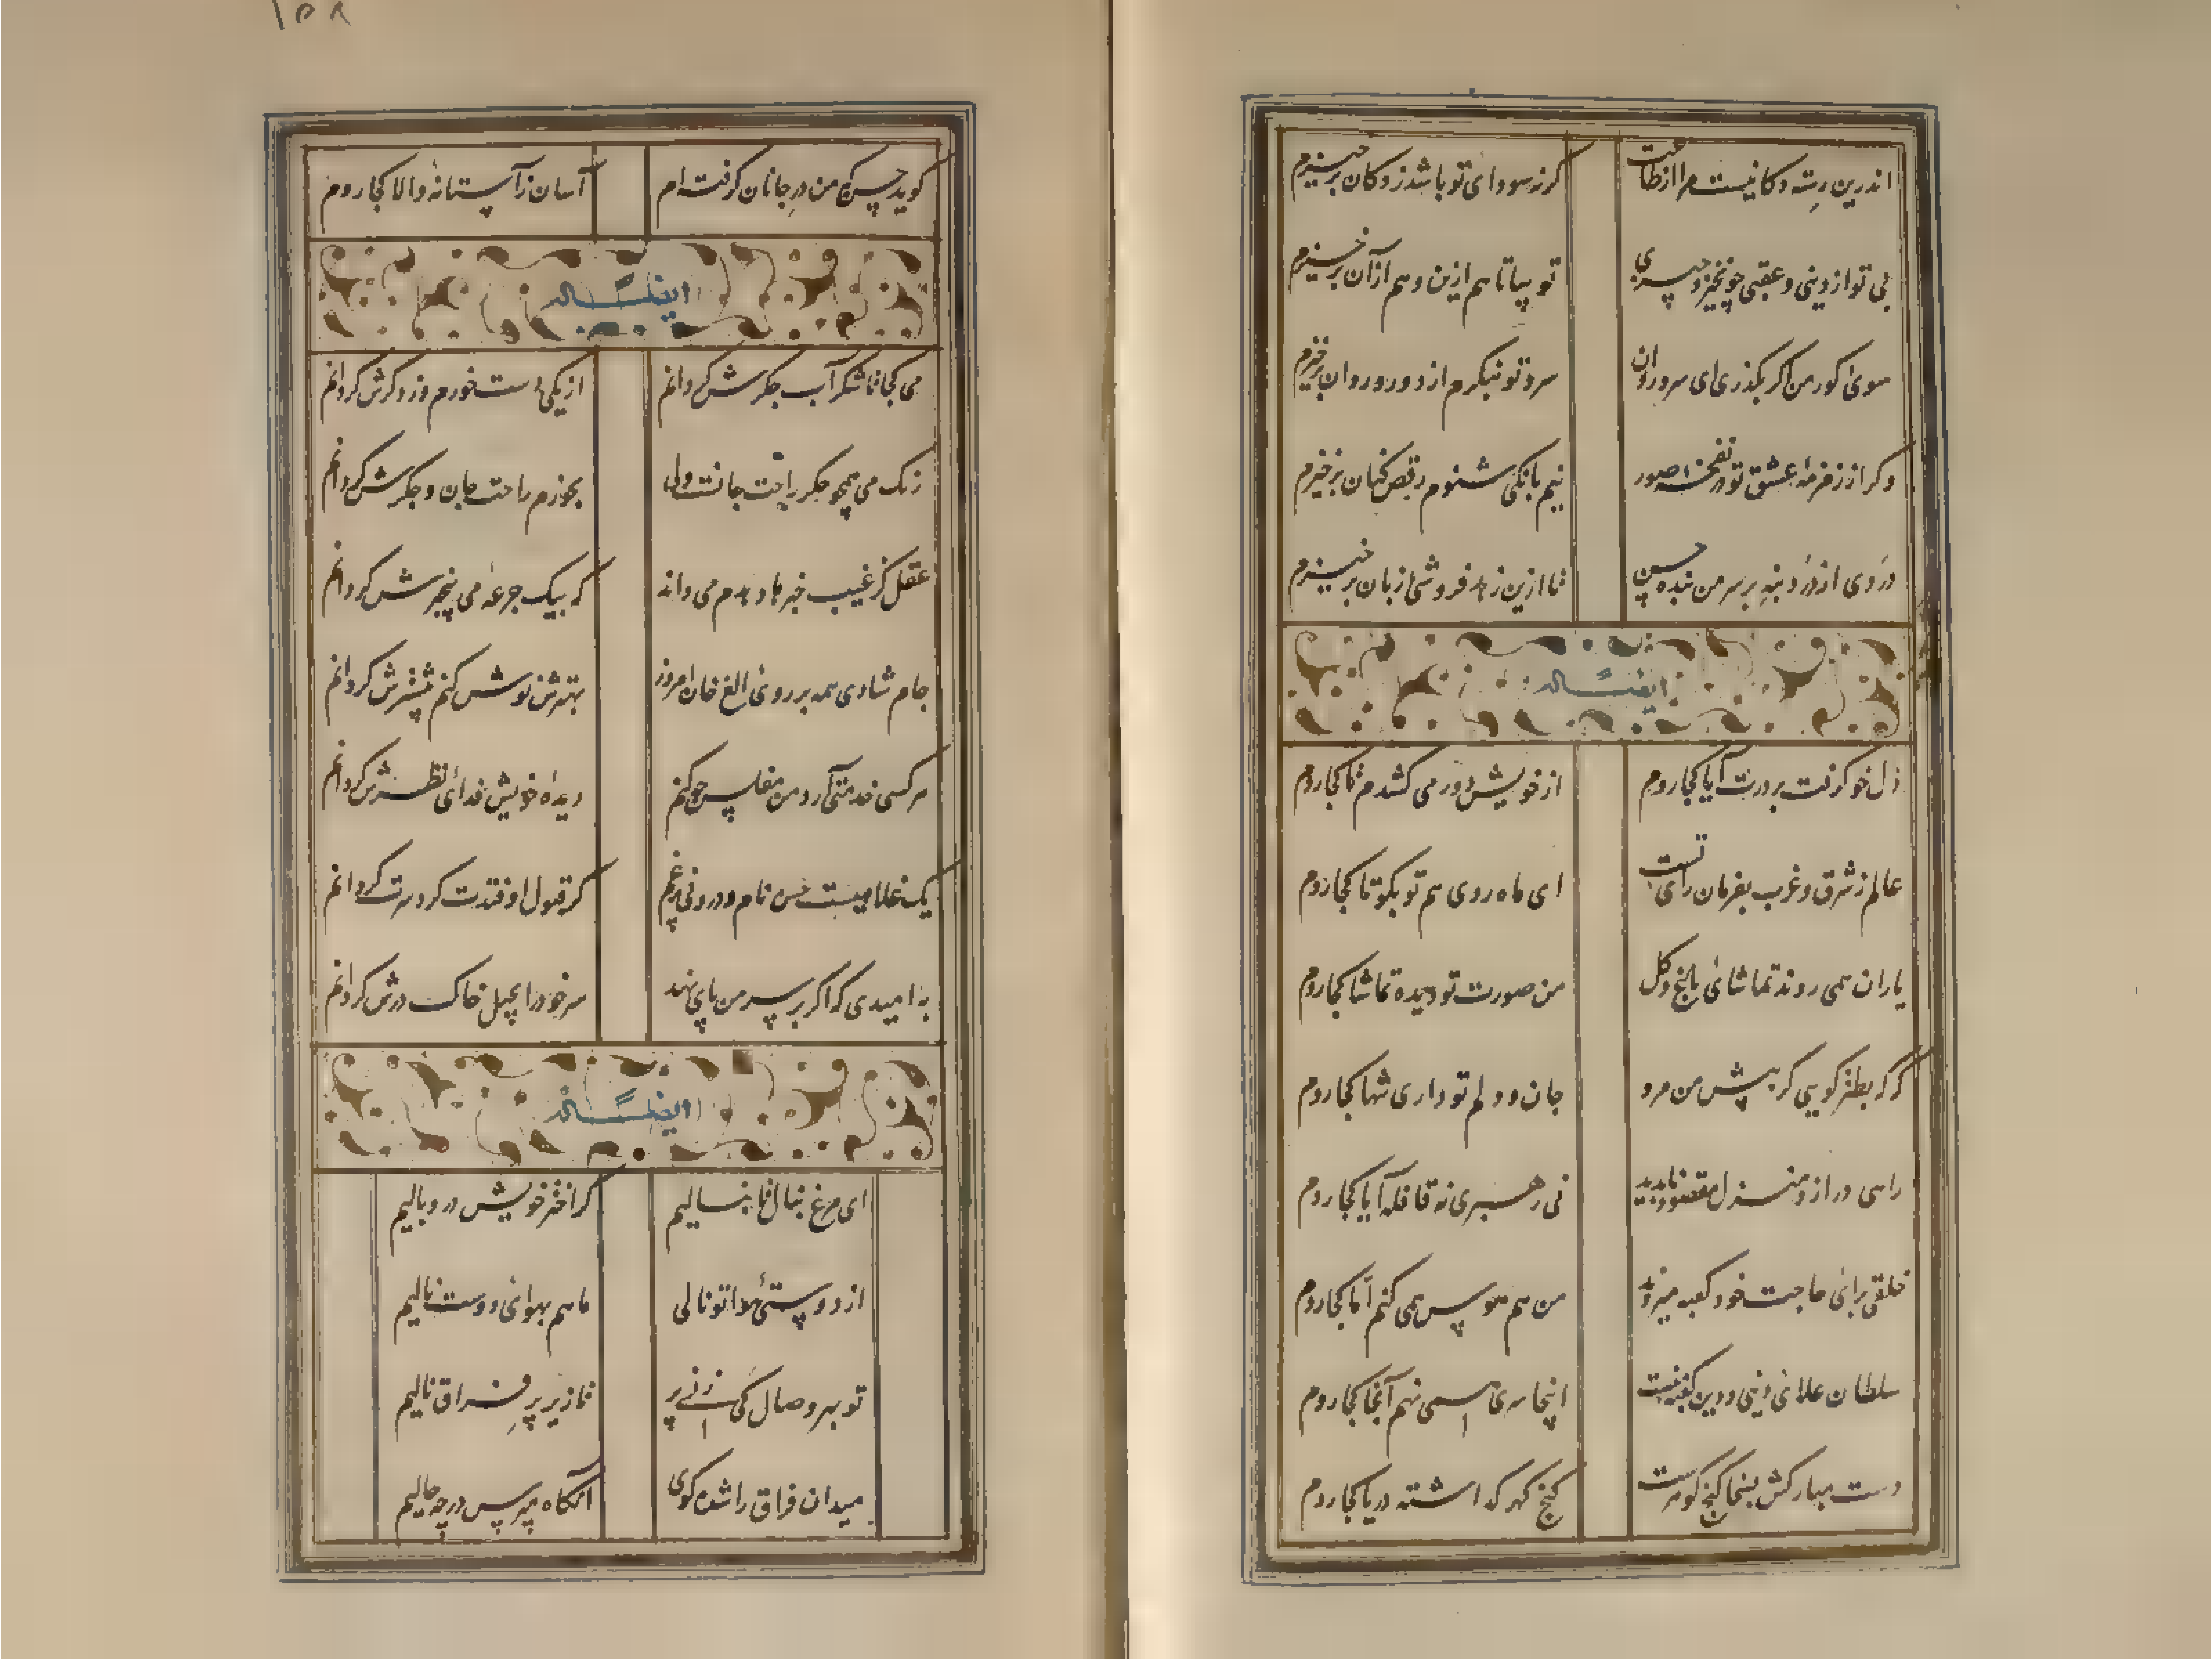 اندرین رسته دکانیست مرا از طاعت
گر نه سودای تو باشد ز دکان برخیزم
بی تو از دینی و عقبی چو نخیزد چیزی
تو بیا تا هم ازین و هم از آن برخیزم
سوی کور من اکر بکذری ای سرو روان
سرو تو ننکرم از دور و روان برخیزم
وکر از زمزمه عشق تو در نفخه صور
نیم بانکی شنوم رقص کنان برخیزم
دردی از درد بنه بر سر من بنده حسن
تا ازین زهد فروشی ز زبان برخیزم
ایضاً له
دل خو کرفت بر درت آیا کجا روم
از خویش دور می کشدم تا کجا روم
عالم ز شرق و غرب بفرمان رای تست
ای ماه روی هم تو بکو تا کجا روم
یاران همی روند تماشای باغ و کل
من صورت تو دیده تماشا کجا روم
که که بطنز کویی کز پیش من مرو
جان و دلم تو داری تنها کجا روم
راهی دراز و منزل مقصود ناپدید
نی رهبری نه قافله آیا کجا روم
خلقی برای حاجت خود کعبه میروند
من هم هوس همی کنم اما کجا روم
سلطان علای دینی و دین
اینجا سری همی نهم آنجا کجا روم
دست مبارکش بسخا کنج کوهرست
کنج کهر کذاشته دریا کجا روم
۱۵۸
کوید حسن که من در جانان کرفته ام
آسان ز آستانه والا کجا روم
ایضاً له
می کجا تا شکر آب جکرش کردانم
از یکی دست خورم وز دکرش کردانم
رنک می همچو جکر راحت جانست ولی
بخورم راحت جان و جکرش کردانم
عقل کز غیب خبرها دهدم می داند
که بیک جرعه می بیخبرش کردانم
جام شادی همه بر روی الغ خان امروز
بهترش نوش کنم بیشترش کردانم
هر کسی خدمتی آرد من مفلس چو کنم
دیده خویش فدای نظرش کردانم
یک غلامیست حسن نام و درونی پر غم
کر قبول اوفتدت کرد سرت کردانم
به امیدی که اکر بر سر من پای نهد
سر خود را بچل خاک درش کردانم
ایضاً له
ای مرغ بنال تا بنالیم
کز اختر خویش در وبالیم
از دوستی هوا تو نالی
ما هم بهوای دوست نالیم
تو بهر وصال کی زنی پر
تا زیر پر فراق نالیم
میدان فراق را شده کوی
آنکاه مپرس در چه حالیم